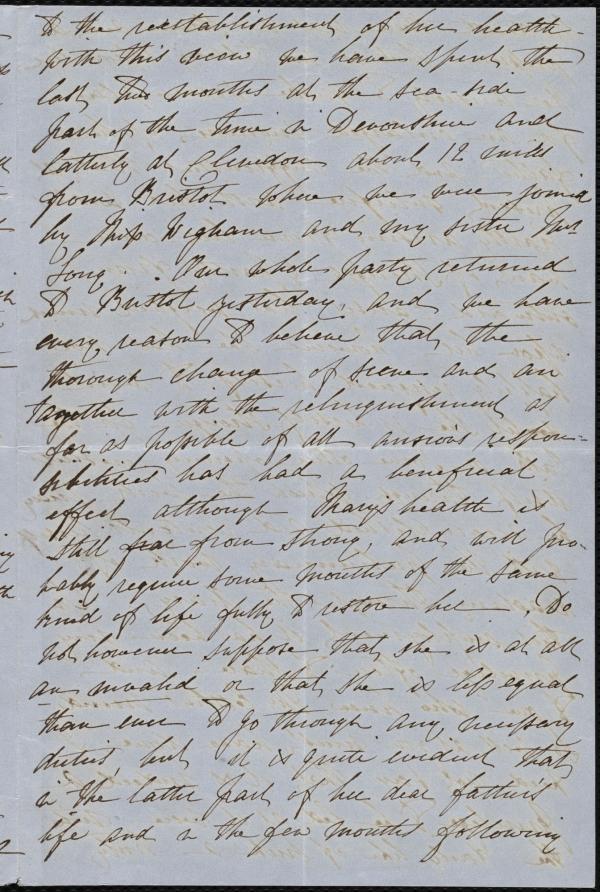 to the reestablishment of her health.
With this view we have spent the
last two months at the sea-side
part of the time in Devonshire and
latterly at Clevedon about 12 miles
from Bristol where we were joined
by Miss Wigham and my sister Mrs
Long. Our whole party returned
to Bristol yesterday, and we have
every reason to believe that the
thorough change of scene and air
together with the relinquishment as
far as possible of all anxious respon-
sibilities has had a beneficial
effect although Mary's health is
still far from strong, and will pro-
bably require some months of the same
kind of life fully to restore her. Do
not however suppose that she is at all
an invalid or that she is less equal
than ever to go through any necessary
duties, but it is quite evident that
in the latter part of her dear father's
life and in the few months following